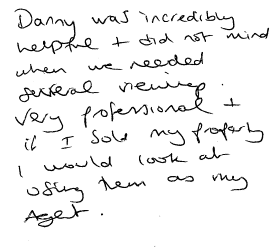 Danny was incredibly
helpful + did not mind
when we needed
several viewings.
Very professional +
if I sold my property
I would look at
using them as my
Agent.